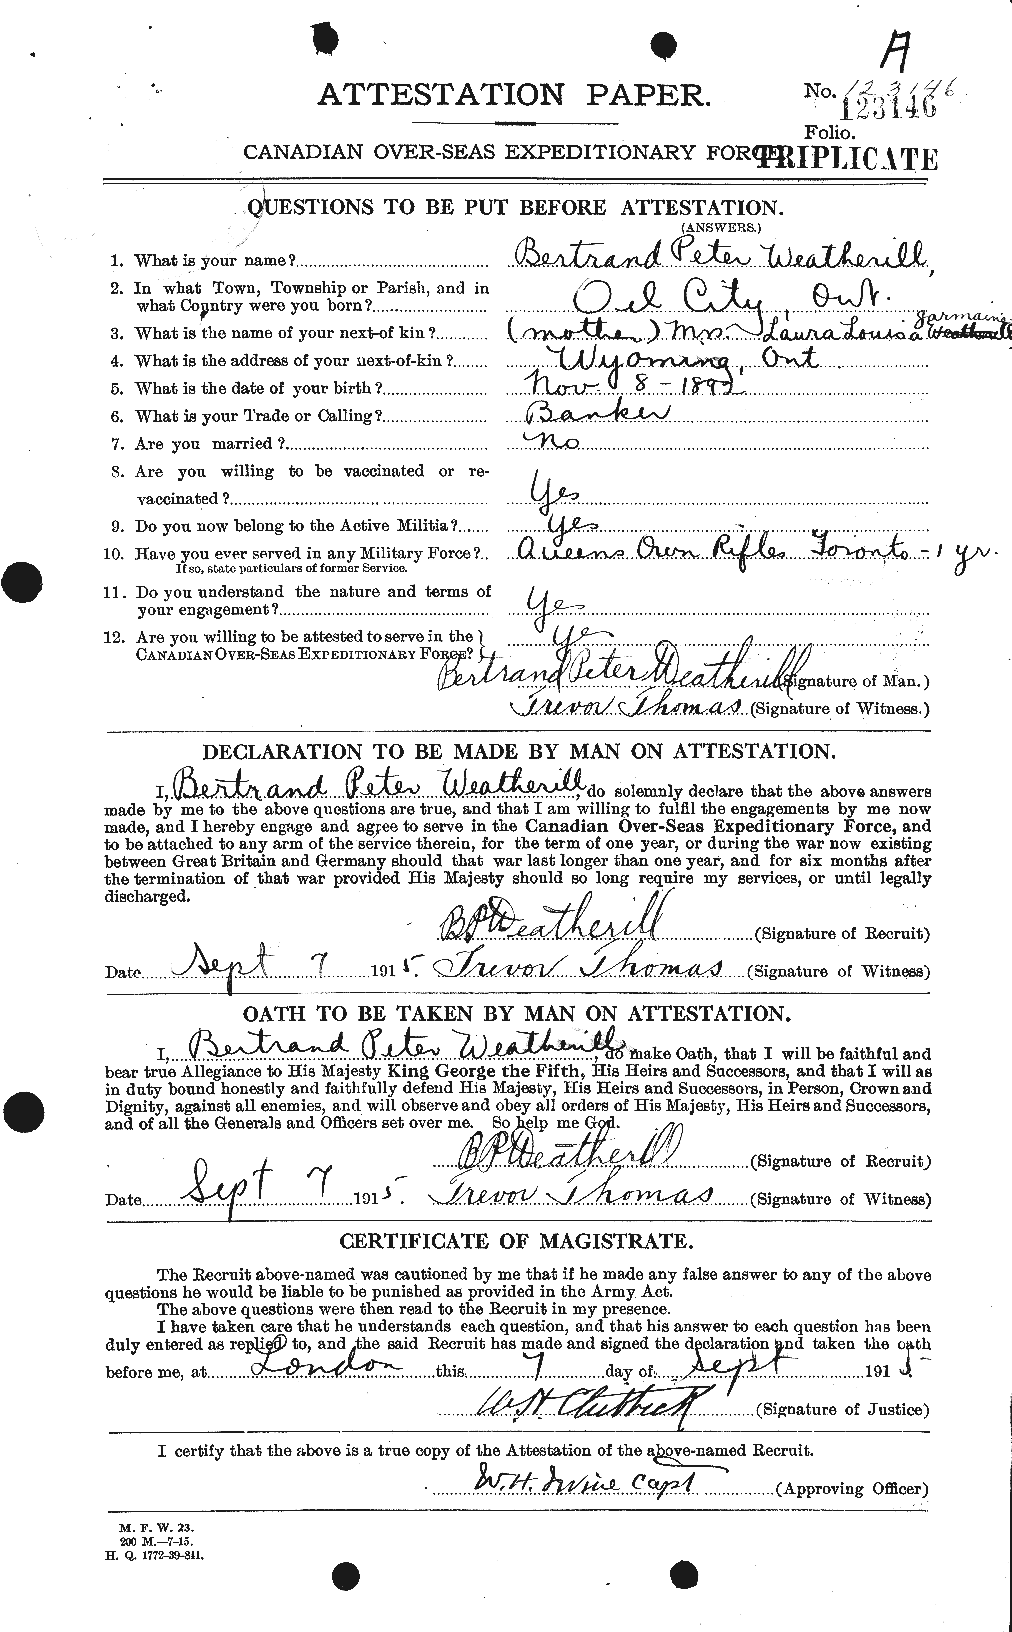 A
ATTESTATION PAPER.
No. 123146
123146
Folio.
CANADIAN OVER-SEAS EXPEDITIONARY FORCE
TRIPLICATE
QUESTIONS TO BE PUT BEFORE ATTESTATION.
(ANSWERS.)
1. What is your name? Bertrand Peter Weatherill,
2. In what Town, Township or Parish, and in
what Country were you born? Oil City, Ont.
3. What is the name of your next-of kin? (mother) Mrs. Laura Louisa Jarmain
4. What is the address of your next-of-kin? Wyoming, Ont
5. What is the date of your birth? Nov 8 - 1892
6. What is your Trade or Calling? Banker
7. Are you married? No
8. Are you willing to be vaccinated or re-
vaccinated? Yes
9. Do you now belong to the Active Militia? Yes
10. Have you ever served in any Military Force? Queens Own Rifles Toronto - 1 yr.
If so, state particulars of former Service.
11. Do you understand the nature and terms of
your engagement? Yes
12. Are you willing to be attested to serve in the
CANADIAN OVER-SEAS EXPEDITIONARY FORCE? Yes
Bertrand Peter Weatherill (Signature of Man.)
Trevor Thomas (Signature of Witness.)
DECLARATION TO BE MADE BY MAN ON ATTESTATION.
I, Bertrand Peter Weatherill, do solemnly declare that the above answers
made by me to the above questions are true, and that I am willing to fulfil the engagements by me now
made, and I hereby engage and agree to serve in the Canadian Over-Seas Expeditionary Force, and
to be attached to any arm of the service therein, for the term of one year, or during the war now existing
between Great Britain and Germany should that war last longer than one year, and for six months after
the termination of that war provided His Majesty should so long require my services, or until legally
discharged.
B P Weatherill (Signature of Recruit)
Date Sept 7 1915. Trevor Thomas (Signature of Witness)
OATH TO BE TAKEN BY MAN ON ATTESTATION.
I, Bertrand Peter Weatherill, do make Oath, that I will be faithful and
bear true Allegiance to His Majesty King George the Fifth, His Heirs and Successors, and that I will as
in duty bound honestly and faithfully defend His Majesty, His Heirs and Successors, in Person, Crown and
Dignity, against all enemies, and will observe and obey all orders of His Majesty, His Heirs and Successors,
and of all the Generals and Officers set over me. So help me God.
B P Weatherill (Signature of Recruit)
Date Sept 7 1915. Trevor Thomas (Signature of Witness)
CERTIFICATE OF MAGISTRATE.
The Recruit above-named was cautioned by me that if he made any false answer to any of the above
questions he would be liable to be punished as provided in the Army Act.
The above questions were then read to the Recruit in my presence.
I have taken care that he understands each question, and that his answer to each question has been
duly entered as replied to, and the said Recruit has made and signed the declaration and taken the oath
before me, at London this 7 day of Sept 1915
W H (Signature of Justice)
I certify that the above is a true copy of the Attestation of the above-named Recruit.
W. H. Irvine Capt (Approving Officer)
M. F. W. 23.
200 M.—7-15.
H. Q. 1772-39-811.